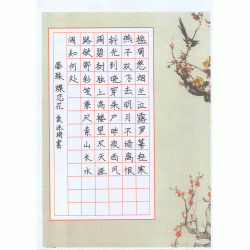 槛菊愁烟兰泣露罗幕轻寒
燕子双飞去明月不谙离恨
斜光到晓穿朱户昨夜西风
凋碧树独上高楼望尽天涯
路欲寄彩笺兼尺素山长水
阔知何处
晏殊 蝶恋花 书